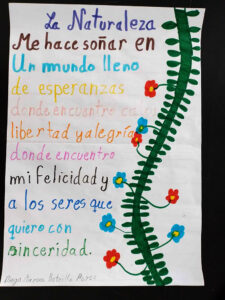 La Naturaleza
Me hace soñar en
Un mundo lleno
de esperanzas
donde encuentre
libertad y alegría
donde encuentro
mi felicidad y
a los seres que
quiero con
sinceridad.